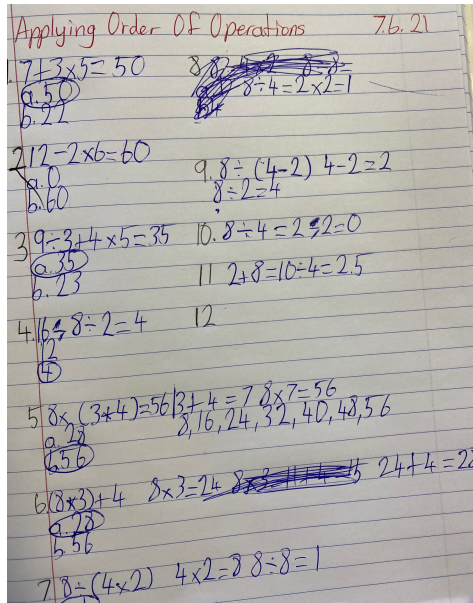 Applying Order Of Operations 7.6.21
1. 7+3×5=50
a.50
b.22
2 12-2×6=60
a.0
b.60
3 9÷3+4×5=35
a.35
b.23
4. 16 8÷2=4
12
4
5 8×(3+4)=56 3+4=7 8×7=56
a.28 8,16,24,32,40,48,56
b.56
6(8×3)+4 8×3=24 24+4=28
a.28
b.56
7 8÷(4×2) 4×2=8 8÷8=1
8
8÷4=2×2=1
9. 8÷(4-2) 4-2=2
8÷2=4
10. 8÷4=2-2=0
11 2+8=10÷4=2.5
12